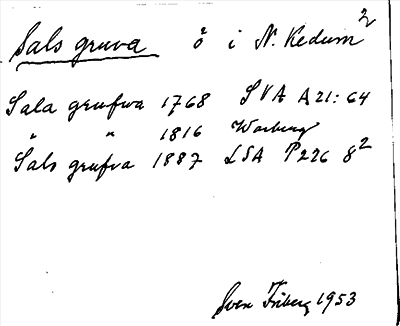 Sals gruva ö i N. Kedum²
Sala grufwa 1768 SVA A21:64
" " 1816 Warburg
Sals grufva 1887 LSA P226 8²
Sven Friberg 1953